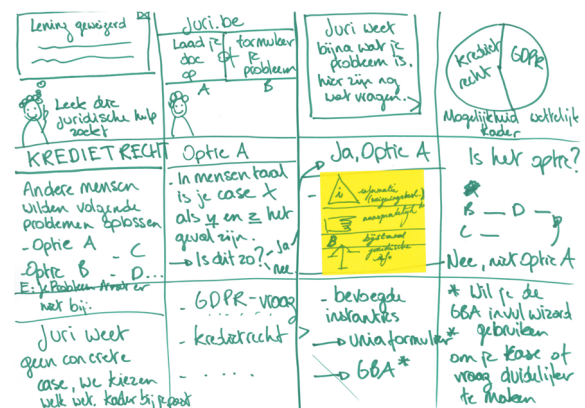 Lening geweigerd
Leek die
juridische hulp
zoekt
juri.be
Laad je
doc
op
of
formuleer
je
probleem
A
B
Juri weet
bijna wat je
probleem is.
hier zijn nog
wat vragen.
krediet
recht
GDPR
Mogelijkheid wettelijk
kader
KREDIETRECHT
Andere mensen
wilden volgende
problemen oplossen
- Optie A
- C
- Optie B
- D...
E: je probleem staat er
niet bij.
Optie A
. In mensentaal
is je case X
als y en z het
geval zijn.
→ Is dit zo?
- Ja
nee
Ja, Optie A
i
informatie
aansprakelijk
B
bijstand
juridische
info
Is het optie?
B — D —
C —
Nee, niet Optie A
Juri weet
geen concrete
case, we kiezen
welk wet. kader bij je past
- GDPR-vraag
.....
- kredietrecht
- ....
- bevoegde
instanties
→ Unia formulier
→ GBA*
* Wil je de
GBA invul wizard
gebruiken
om je Case of
vraag duidelijker
te maken